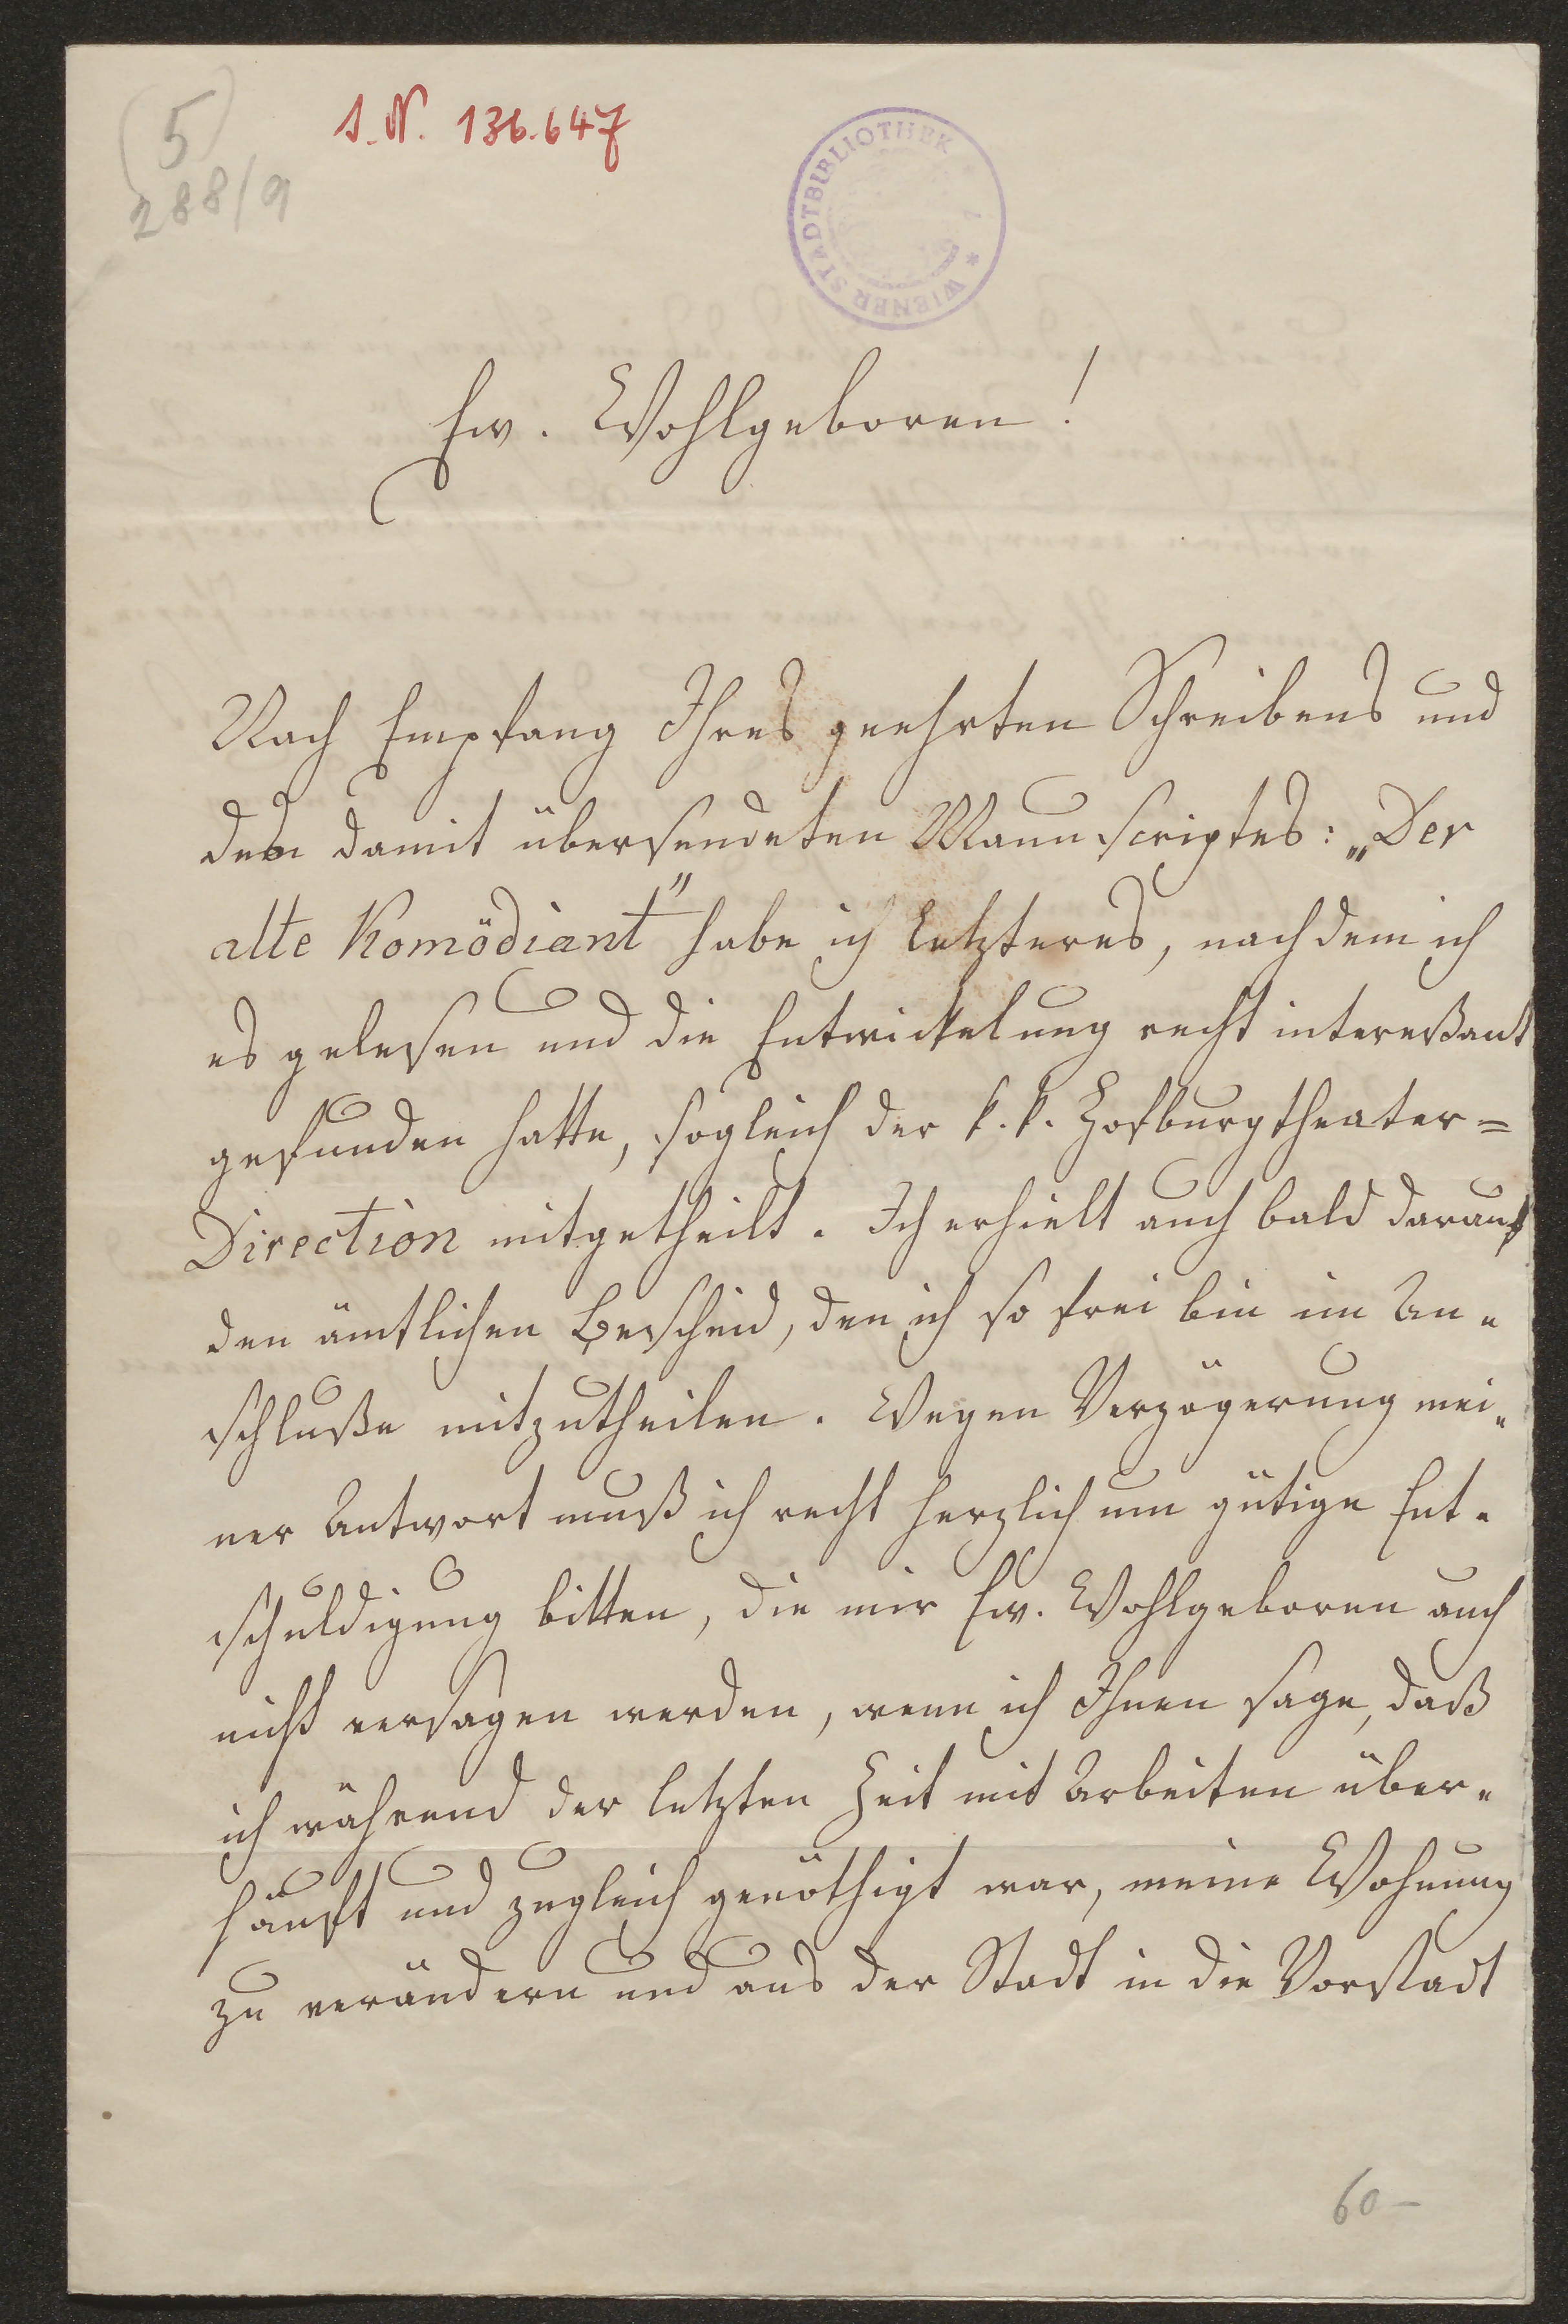 (5)
288/9
I.N. 136.647
WIENER STADTBIBLIOTHEK
Ew. Wohlgeboren!
Nach Empfang Ihres geehrten Schreibens und
des damit übersendeten Manuscriptes: „Der
alte Komödiant" habe ich letzteres, nachdem ich
es gelesen und die Entwickelung recht intereßant
gefunden hatte, sogleich der k. k. Hofburgtheater=
Direction mitgetheilt. Ich erhielt auch bald darauf
den ämtlichen Bescheid, den ich so frei bin im An-
schluße mitzutheilen. Wegen Verzögerung mei-
ner Antwort muß ich recht herzlich um gütige Ent-
schuldigung bitten, die mir Ew. Wohlgeboren auch
nicht versagen werden, wenn ich Ihnen sage, daß
ich während der letzten Zeit mit Arbeiten über-
häuft und zugleich genöthigt war, meine Wohnung
zu verändern und aus der Stadt in die Vorstadt
60-